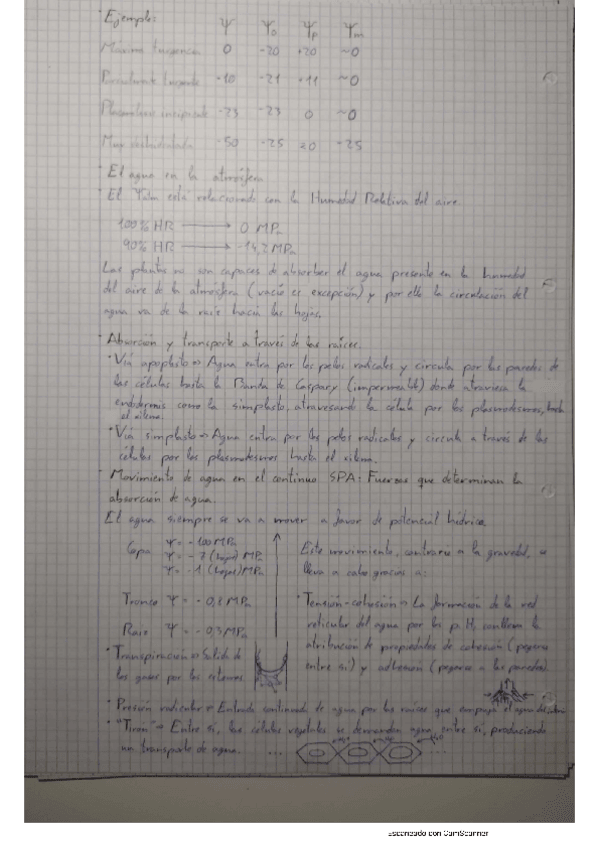 · Ejemplo: Ψ Ψo Ψp Ψm
Máxima turgencia 0 -20 +20 ~0
Parcialmente turgente -10 -21 +11 ~0
Plasmólisis incipiente -23 -23 0 ~0
Muy deshidratada -50 -25 ±0 -25
· El agua en la atmósfera
· El Ψatm está relacionado con la Humedad Relativa del aire.
100% HR → 0 MPa
90% HR → -14,2 MPa
Las plantas no son capaces de absorber el agua presente en la humedad
del aire de la atmósfera (vació es excepción) y por ello la circulación del
agua va de la raíz hacia las hojas.
· Absorción y transporte a través de las raíces.
· Vía apoplasto => Agua entra por los pelos radicales y circula por las paredes de
las células hasta la Banda de Caspary (impermeable) donde atraviesa la
endodermis como la simplasto, atravesando la célula por los plasmodesmos, hasta
el xilema.
· Vía simplasto => Agua entra por los pelos radicales y circula a través de las
células por los plasmodesmos hasta el xilema.
· Movimiento de agua en el continuo SPA: Fuerzas que determinan la
absorción de agua.
El agua siempre se va a mover a favor de potencial hídrico
Copa Ψ = -100 MPa
Ψ = -7 (hojas) MPa
Ψ = -1 (hojas) MPa
Tronco Ψ = -0,8 MPa
Raíz Ψ = -0,3 MPa
· Transpiración => Salida de
los gases por los estomas.
Este movimiento, contrario a la gravedad, se
lleva a cabo gracias a:
· Tensión-cohesión => La formación de la red
reticular del agua por los p. H, conlleva la
atribución de propiedades de cohesión (pegarse
entre sí) y adhesión (pegarse a las paredes)
· Presión radicular => Entrada continuada de agua por las raíces que empuja el agua de
· "Tirón" => Entre sí, las células vegetales se demandan agua entre sí, produciendo
un transporte de agua. ... ...
Escaneado con CamScanner